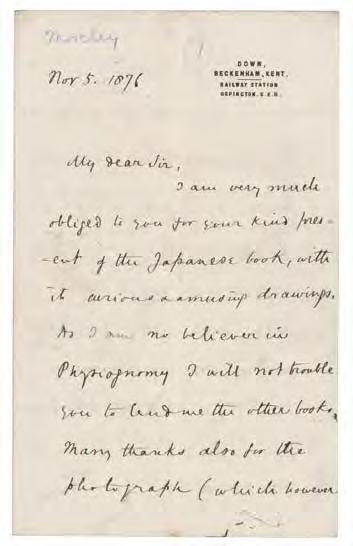 Moseley
Nov 5. 1876
DOWN,
BECKENHAM, KENT.
RAILWAY STATION
ORPINGTON. S.E.R.
My dear Sir,
I am very much
obliged to you for your kind pres-
-ent of the Japanese book, with
it curious & amusing drawings.
As I am no believer in
Physiognomy I will not trouble
you to lend me the other books.
Many thanks also for the
photograph (which however